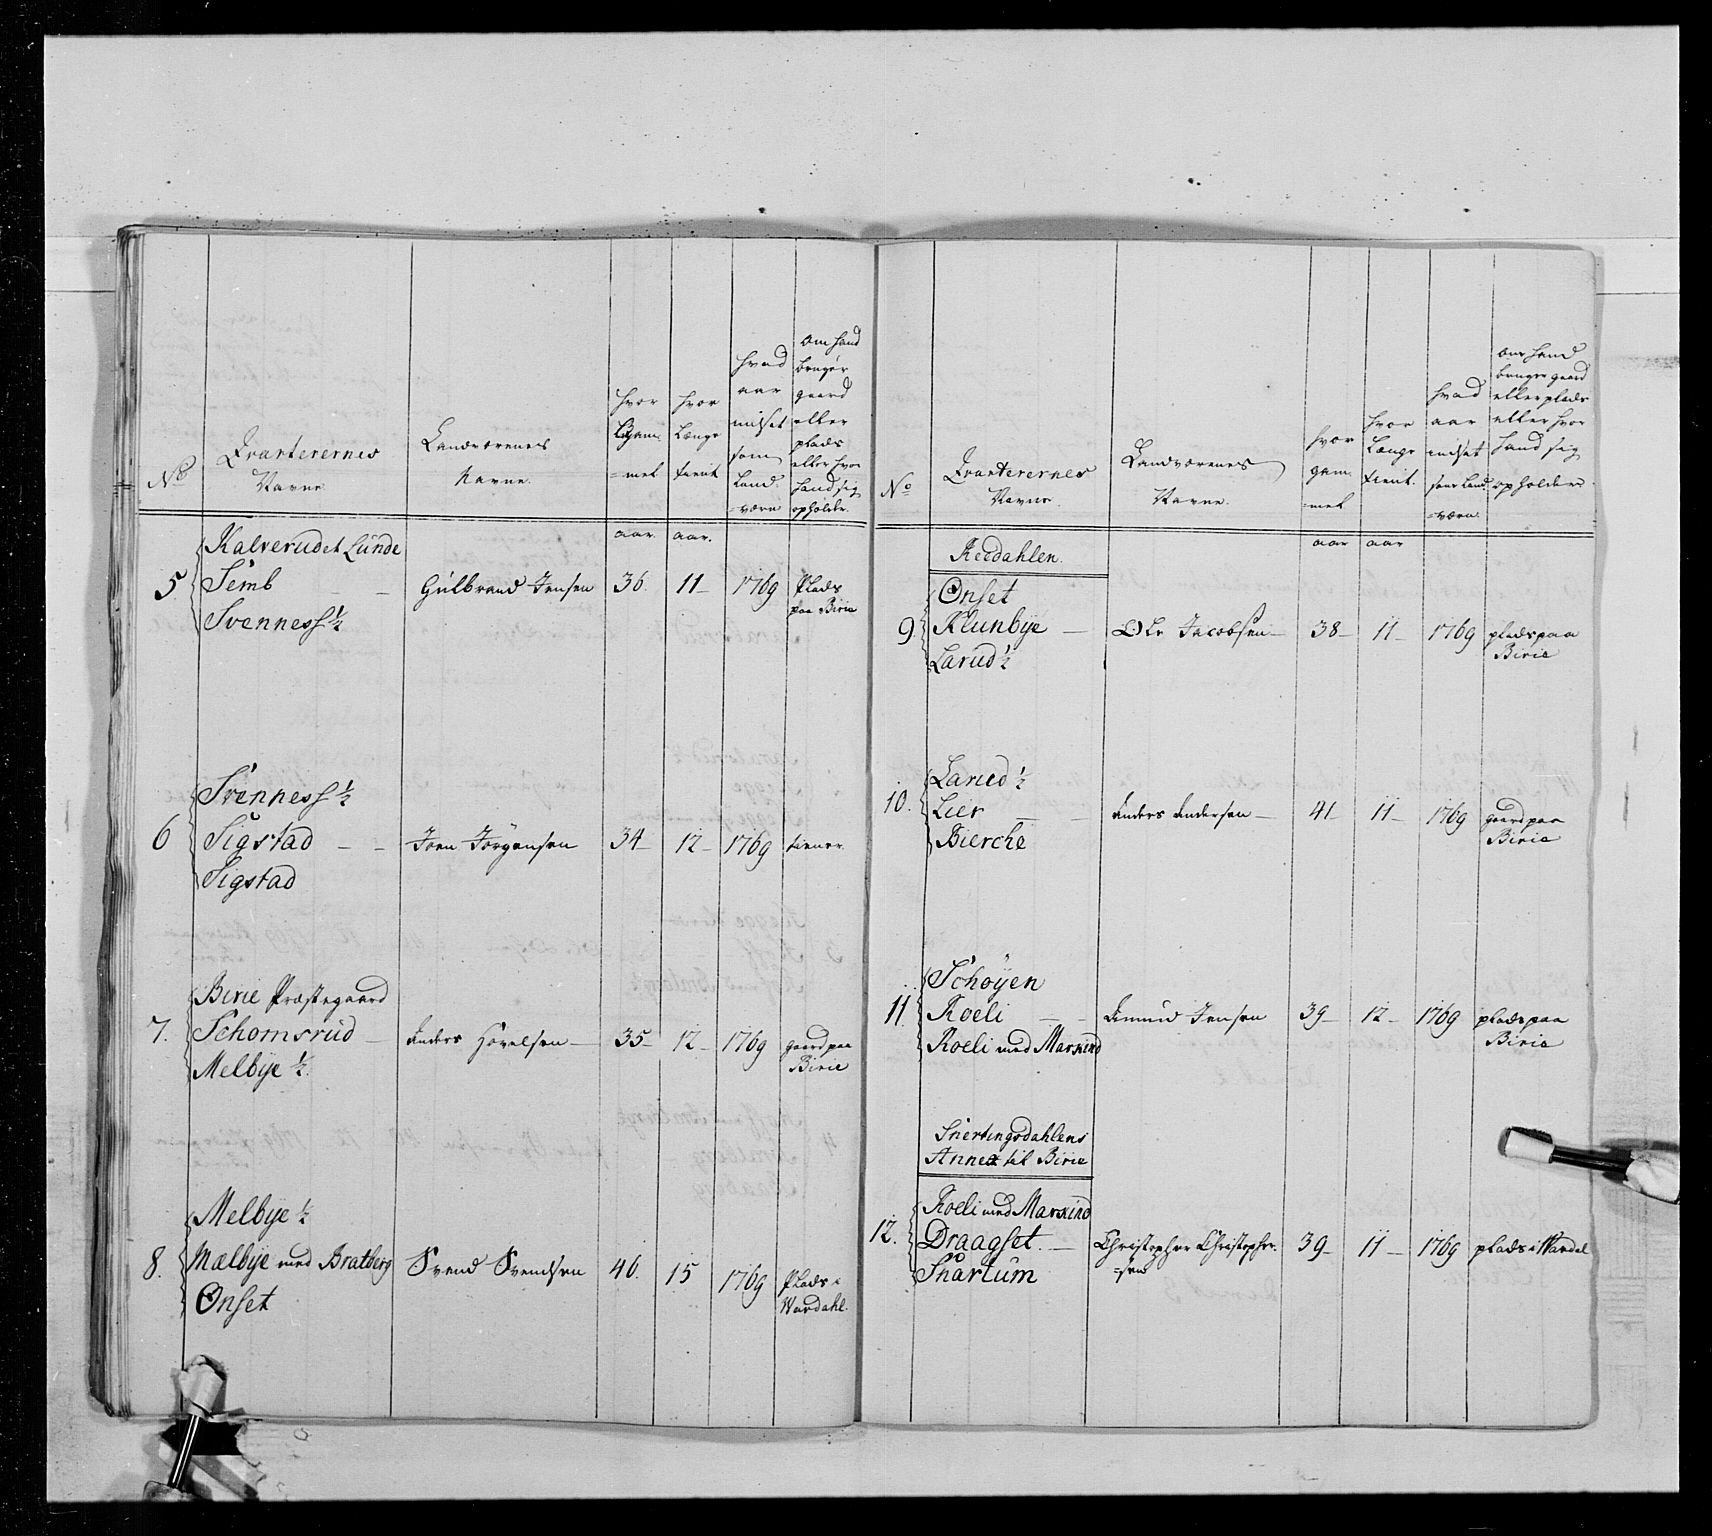 No
Qvarterernes
Navne
Landværenes
Navne.
hvor
Gam
=mel
hvor
Længe
tient
hvad
aar
ndset
som
Land
=værn
om hand
bruger
gaard
eller
plads
eller hvor
hand sig
opholder.
aar.
aar.
5
Kalverudet Lunde
Semb
Svenness ½
Gulbrand Jensen
36.
11
1769
Plads
paa Birie
6
Svenness ½
Sigstad
Sigstad
Joen Jörgensen
34
12
1769
tiener
7.
Birie Præstegaard
Schomsrud
Melbye ½
Anders Hovelsen
35
12
1769
gaard paa
Birie
8.
Melbye ½
Mælbye med Bratberg
Onset
Svend Svendsen
46.
15
1769
Plads i
Wardahl.
No
Qvarterernes
Navne.
Landværenes
Navne.
hvor
gam
=mel
hvor
Længe
tient.
hvad
aar
indset
som Land
=værn
om hand
bruger gaard
eller plads
eller hvor
hand sig
opholder.
aar
aar
Reedahlen.
9
Onset
Klunbye
Larud ½
Ole Jacobsen
38
11
1769
plads paa
Birie
10.
Larud ½
Lier
Bierche
Anders Andersen
41
11
1769
gaard paa
Birie
11.
Schöyen
Roeli
Roeli med Marxind
Amund Jensen
39
12
1769
plads paa
Birie
Snertingsdahlens
Annex til Birie
12.
Roeli med Marxind
Draagset.
Skartum
Christopher Christopher=
=sen
39
11
1769
plads i Wardal